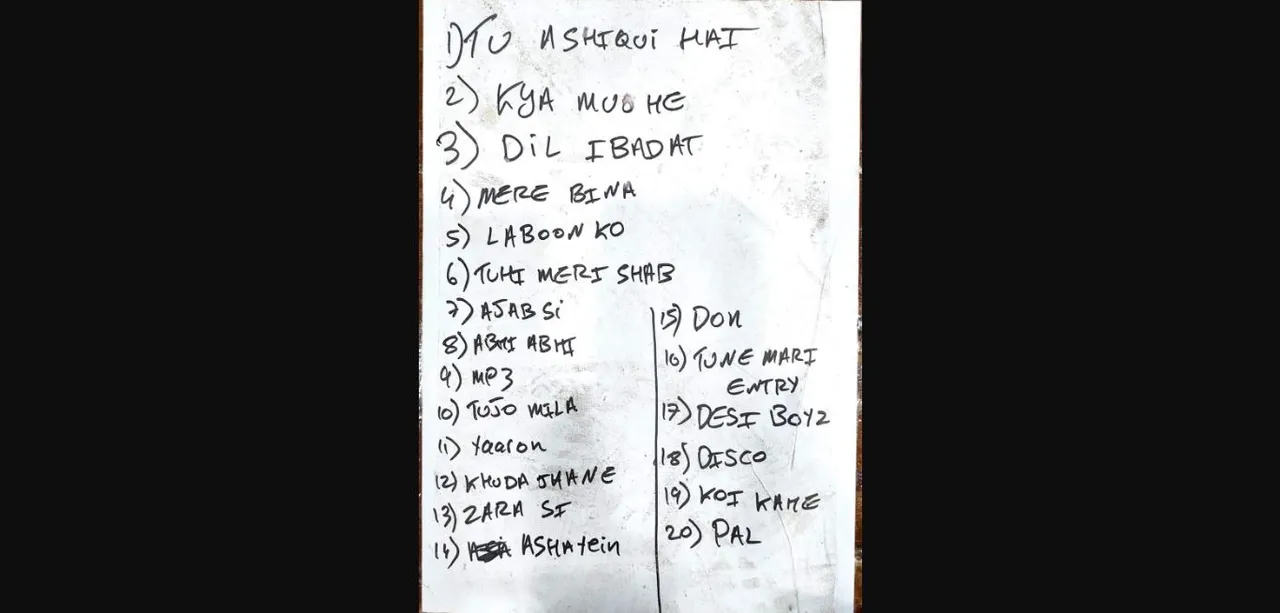 1) TU ASHIQUi HAI
2) KYA MUJHE
3) DiL IBADAT
4) MERE BINA
5) LABOON KO
6) TUHI MERI SHAB
7) AJAB Si
8) ABHI ABHI
9) MP3
10) TUJO MILA
11) Yaaron
12) KHUDA JHANE
13) ZARA SI
14) ASHAtein
15) DON
16) TUNE MARI
ENTRY
17) DESI BOYZ
18) DISCO
19) KOI KAHE
20) PAL